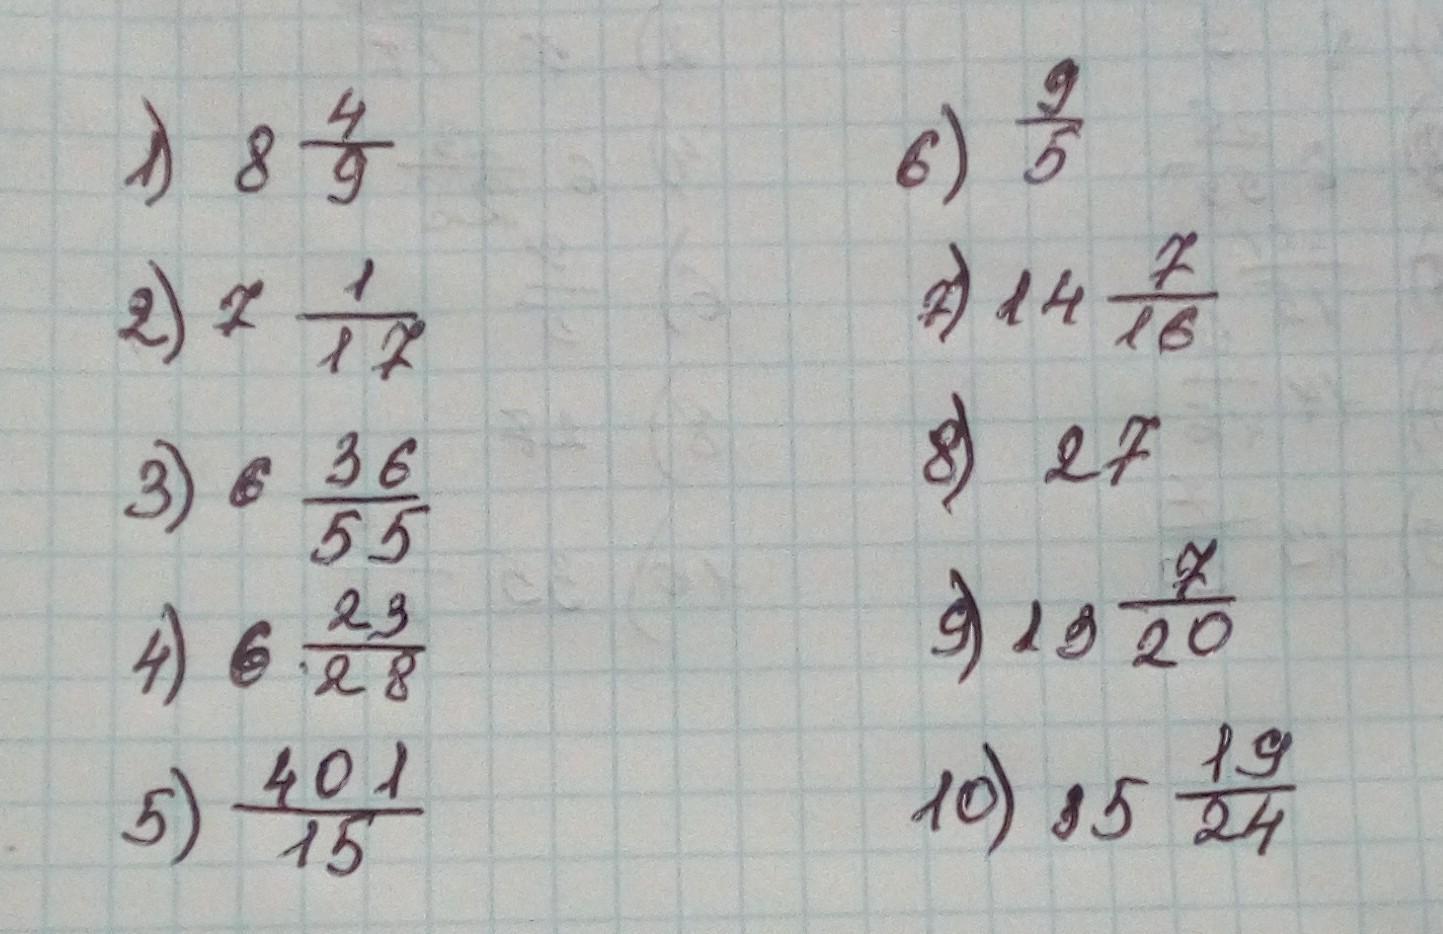 1) 8 4/9
2) 7 1/17
3) 6 36/55
4) 6 23/28
5) 401/15
6) 9/5
7) 14 7/16
8) 27
9) 13 7/20
10) 35 19/24